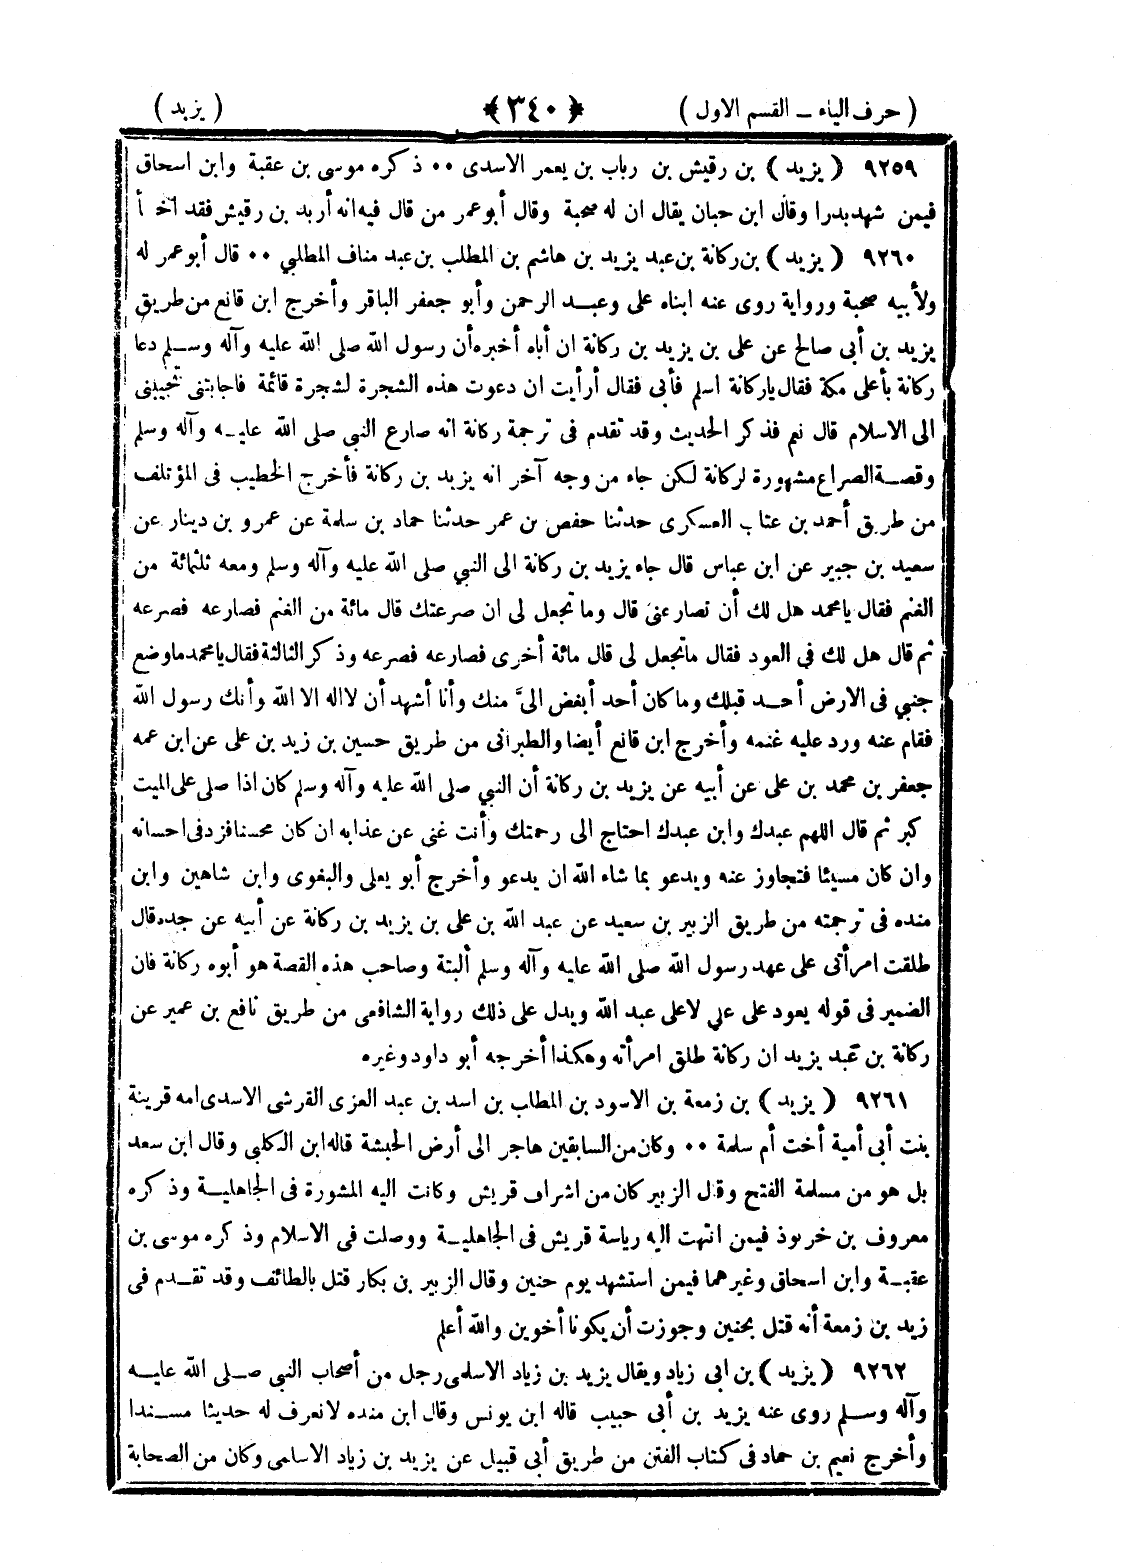 ( حرف الياء ــ القسم الاول ) ﴿٣٤٠﴾ ( يزيد )
٩٢٥٩ ( يزيد ) بن رقيش بن رباب بن يعمر الاسدى ٠٠ ذكره موسى بن عقبة وابن اسحاق
فيمن شهد بدرا وقال ابن حبان يقال ان له صحبة وقال أبو عمر من قال فيه انه أربد بن رقيش فقد اخـ أ
٩٢٦٠ ( يزيد ) بن ركانة بن عبد يزيد بن هاشم بن المطلب بن عبد مناف المطلبي ٠٠ قال أبو عمر له
ولأبيه صحبة ورواية روى عنه ابناه على وعبـد الرحمن وأبو جعفر الباقر وأخرج ابن قانع من طريق
يزيد بن أبى صالح عن على بن يزيد بن ركانة ان أباه أخبره أن رسول الله صلى الله عليه وآله وسـلم دعا
ركانة بأعلى مكة فقال ياركانة اسلم فأبى فقال أرأيت ان دعوت هذه الشجرة لشجرة قائمة فاجابتنى تجيبنى
الى الاسلام قال نعم فذكر الحديث وقد تقدم فى ترجمة ركانة انه صارع النبي صلى الله عليـه وآله وسلم
وقصـة الصراع مشهورة لركانة لكن جاء من وجه آخر انه يزيد بن ركانة فأخرج الخطيب فى المؤتلف
من طريق أحمد بن عتاب العسكرى حدثنا حفص بن عمر حدثنا حماد بن سلمة عن عمرو بن دينار عن
سعيد بن جبير عن ابن عباس قال جاء يزيد بن ركانة الى النبي صلى الله عليه وآله وسلم ومعه ثلثمائة من
الغنم فقال يامحمد هل لك أن تصارعنى قال وما تجعل لى ان صرعتك قال مائة من الغنم فصارعه فصرعه
ثم قال هل لك فى العود فقال ما تجعل لى قال مائة أخرى فصارعه فصرعه وذكر الثالثة فقال يامحمد ماوضع
جنبي فى الارض أحـد قبلك وما كان أحد أبغض الىَّ منك وأنا أشهد أن لااله الا الله وأنك رسول الله
فقام عنه ورد عليه غنمه وأخرج ابن قانع أيضا والطبرانى من طريق حسين بن زيد بن على عن ابن عمه
جعفر بن محمد بن على عن أبيه عن يزيد بن ركانة أن النبي صلى الله عليه وآله وسلم كان اذا صلى على الميت
كبر ثم قال اللهم عبدك وابن عبدك احتاج الى رحمتك وأنت غنى عن عذابه ان كان محسنا فزد فى احسانه
وان كان مسيئا فتجاوز عنه ويدعو بما شاء الله ان يدعو وأخرج أبو يعلى والبغوى وابن شاهين وابن
منده فى ترجمته من طريق الزبير بن سعيد عن عبد الله بن على بن يزيد بن ركانة عن أبيه عن جده قال
طلقت امرأتى على عهد رسول الله صلى الله عليه وآله وسلم ألبتة وصاحب هذه القصة هو أبوه ركانة فان
الضمير فى قوله يعود على علي لا على عبد الله ويدل على ذلك رواية الشافعى من طريق نافع بن عمير عن
ركانة بن عبد يزيد ان ركانة طلق امرأته وهكذا أخرجه أبو داود وغيره
٩٢٦١ ( يزيد ) بن زمعة بن الاسود بن المطلب بن اسد بن عبد العزى القرشى الاسدى امه قرينة
بنت أبى أمية أخت أم سلمة ٠٠ وكان من السابقين هاجر الى أرض الحبشة قاله ابن الكلبى وقال ابن سعد
بل هو من مسلمة الفتح وقال الزبير كان من اشراف قريش وكانت اليه المشورة فى الجاهليـة وذكره
معروف بن خربوذ فيمن انتهت اليه رياسة قريش فى الجاهليـة ووصلت فى الاسلام وذكره موسى بن
عقبـة وابن اسحاق وغيرهما فيمن استشهد يوم حنين وقال الزبير بن بكار قتل بالطائف وقد تقـدم فى
زيد بن زمعة أنه قتل بحنين وجوزت أن يكونا أخوين والله أعلم
٩٢٦٢ ( يزيد ) بن ابى زياد ويقال يزيد بن زياد الاسلمى رجل من أصحاب النبي صـلى الله عليـه
وآله وسـلم روى عنه يزيد بن أبى حبيب قاله ابن يونس وقال ابن منده لانعرف له حديثا مسـندا
وأخرج نعيم بن حماد فى كتاب الفتن من طريق أبى قبيل عن يزيد بن زياد الاسلمى وكان من الصحابة